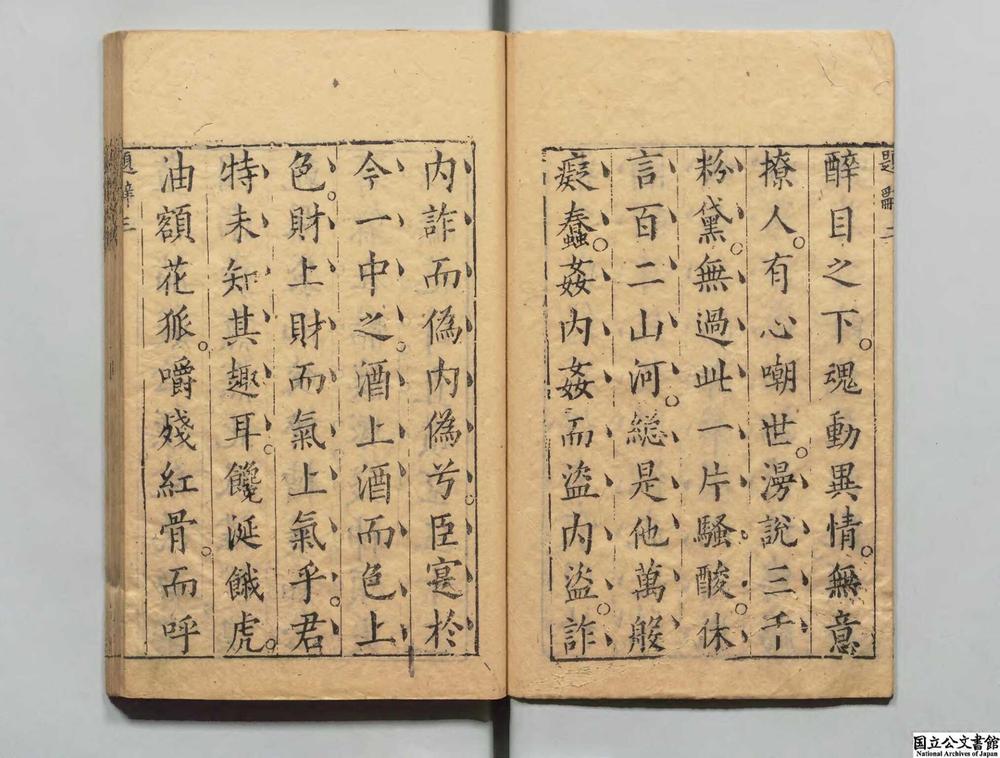 題辭二
醉目之下。魂動異情。無意
撩人。有心嘲世。漫說三千
粉黛。無過此一片騷酸。休
言百二山河。總是他萬般
癡蠢。姦內姦而盜內盜。詐
內詐而偽內偽兮。臣寔於
今一中之。酒上酒而色上
色。財上財而氣上氣乎。君
特未知其趣耳。饞涎餓虎。
油額花狐。嚼殘紅骨。而呼
題辭三
国立公文書館
National Archives of Japan